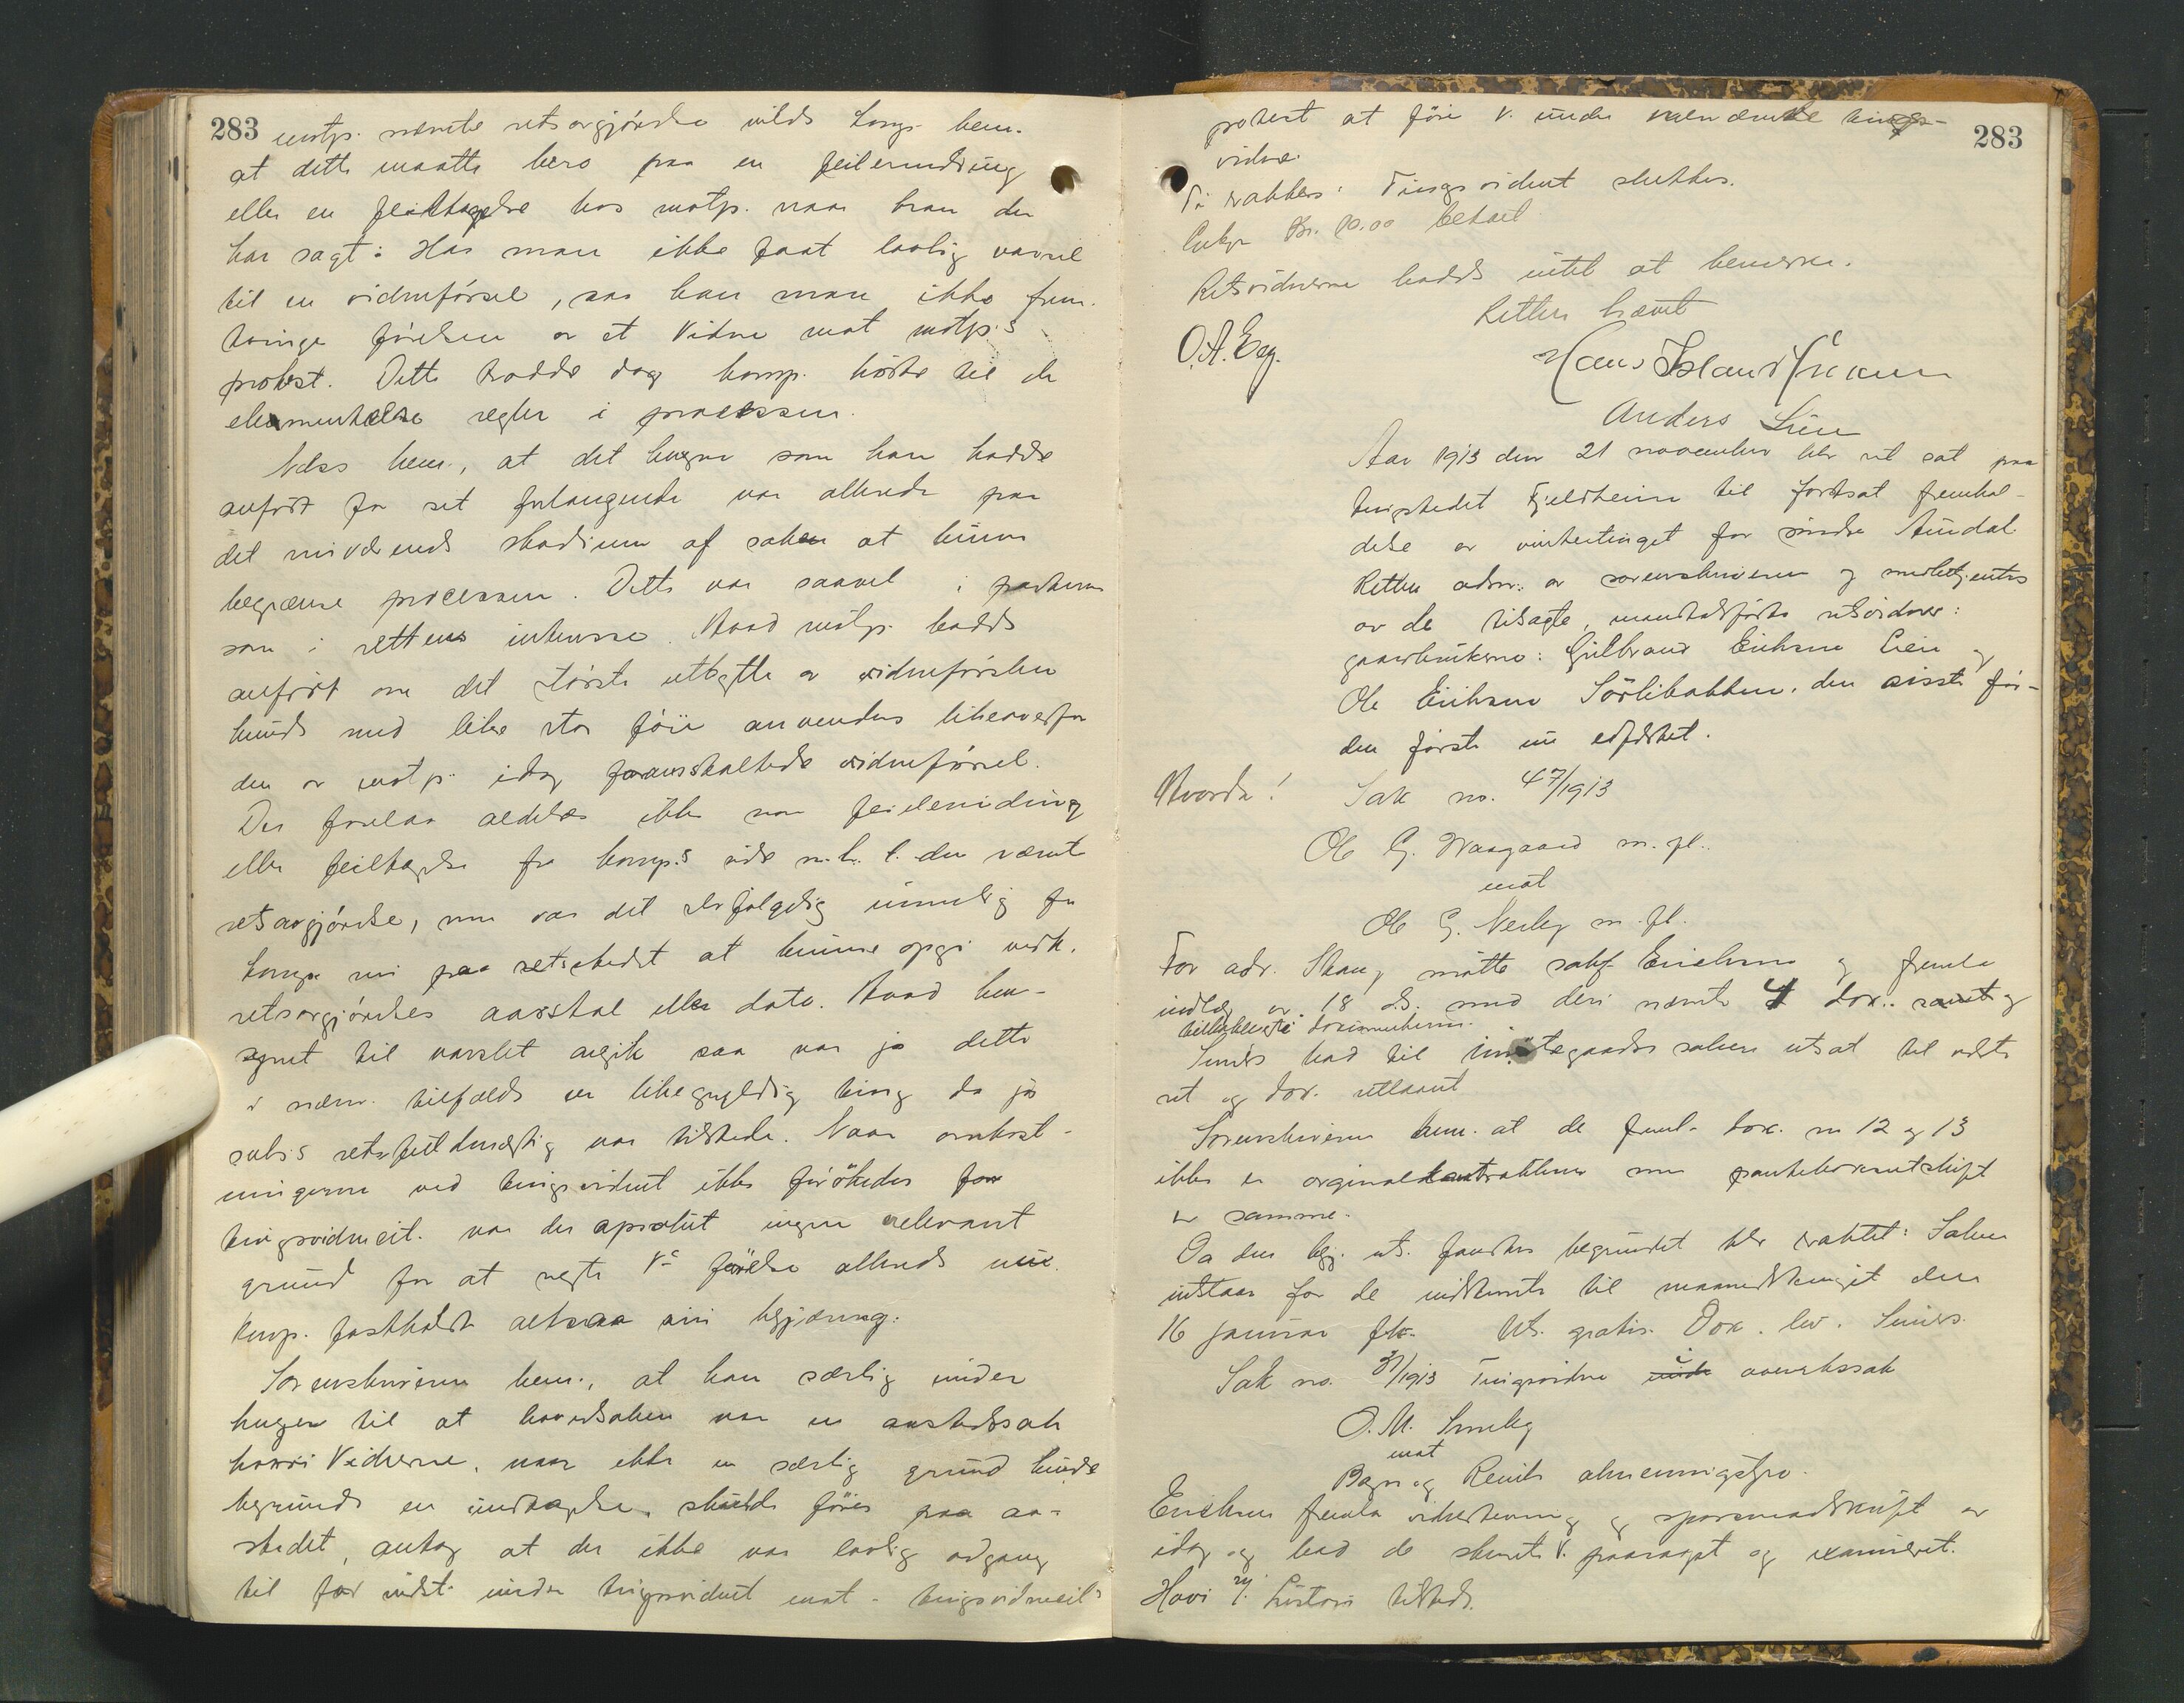 283
motp. nævnte retsavgjørelse vilde komp. bem.
at dette maatte bero paa en feilerindring
eller en feiltagelse hos motp. naar han der
har sagt: Har man ikke faat lovlig varsel
til en vidneførsel, saa kan man ikke frem-
tvinge førelsen av et Vidne mot motp.s
protest. Dette trodde dog komp. hørte til de
elementelre regler i processen.
Næss bem., at det hwgne som han hadde
anført for set forlangende var allerede paa
det nuværende stadium af saken at kunne
begrænse processen. Dette var saavel i parternes
som i rettens interesse. Hvad motp. hadde
anført om det største utbytte av vidneførslen
kunde med like stor føie anvendes likeoverfor
den av motp. idag foranstaltede vidneførsel.
Der forelaa aldeles ikke nogen feilerindring
eller feiltagelse fra komp.s side m.h.t. den nævnte
retsavgjørelse, men var det selvfølgelig umulig for
komp. nu paa retstedet at kunne opgi vedk.
retsavgjørelses aarstal eller dato. Hvad hen-
synet til varslet angik saa var jo dette
i nærv. tilfælde en likegyldig ting da jo
sabs retsfuldmægtig var tilstede. Naar omkost-
ningerne ved tingsvidnet ikke forøkedes for
tingsvidneit. var der apsolut ingen relevant
grund for at negte V.s førelse allerede nu.
Komp. fastholdt altsaa sin begjæring.
Sorenskriveren bem., at han særlig under
hensyn til at hovedsaken var en aastedssak
hvori Vidnerne, naar ikke en særlig grund kunde
begrunde en undtagelse, skulde føres paa aa-
stedet, antog at der ikke var lovlig adgang
til for indst. under tingsvidnet mot tingsvidneit.s
283
protest at føre V. under nærværende tings-
vidne.
Ti eragtes: Tingsvidnet sluttes.
Gebyr Kr. 10.00 betalt
Retsvidnerne hadde intet at bemerke.
Retten hævet
O.A. Eng.
Anders Lien
Aar 1913 den 21 november blev ret sat paa
tingstedet Fjeldheim til fortsat fremhol-
delse av vintertinget for søndre Aurdal
Retten adm. av sorenskriveren og medbetjentes
av de tilsagte, mandtalsførte retsvidner:
gaardbrukerne: Gulbrand Eriksen Lien og
Ole Eriksen Sørlibakken, den sisste før-
den første nu edfæstet.
Hvorda!
Sak no. 47/1913
Ole G. Waagaard m. fl.
mot
Ole G. Nerby m. fl.
For adv. Skaug møtte sakf. Erichsen og fremla
indlæg av 18 ds. med deri nævnte 4 dok. samt og
dokumenterne.
Smebs bad til imøtegaaelse saken utsat til næste
ret og dok. utlaant
Sorenskriveren bem. at de freml. dok. nr 12 og 13
ikke er orginalkontrakterne men pantebokeutskrift
av samme.
Da den begj. uts. fandtes begrundet blev eragtet: Saken
utstaar for de indstevnte til maanedstinget den
16 januar fk. Uts. gratis. Dok. lev. Smebs.
Sak no. 31/1913 Tingsvidne i aværkssak
O. M. Smeby
mot
Bagn og Reinli almenningsstyre.
Erichsen fremla vidnestevning og spørsmaalskrift av
idag og bad de stevnte V. paaropt og examineret.